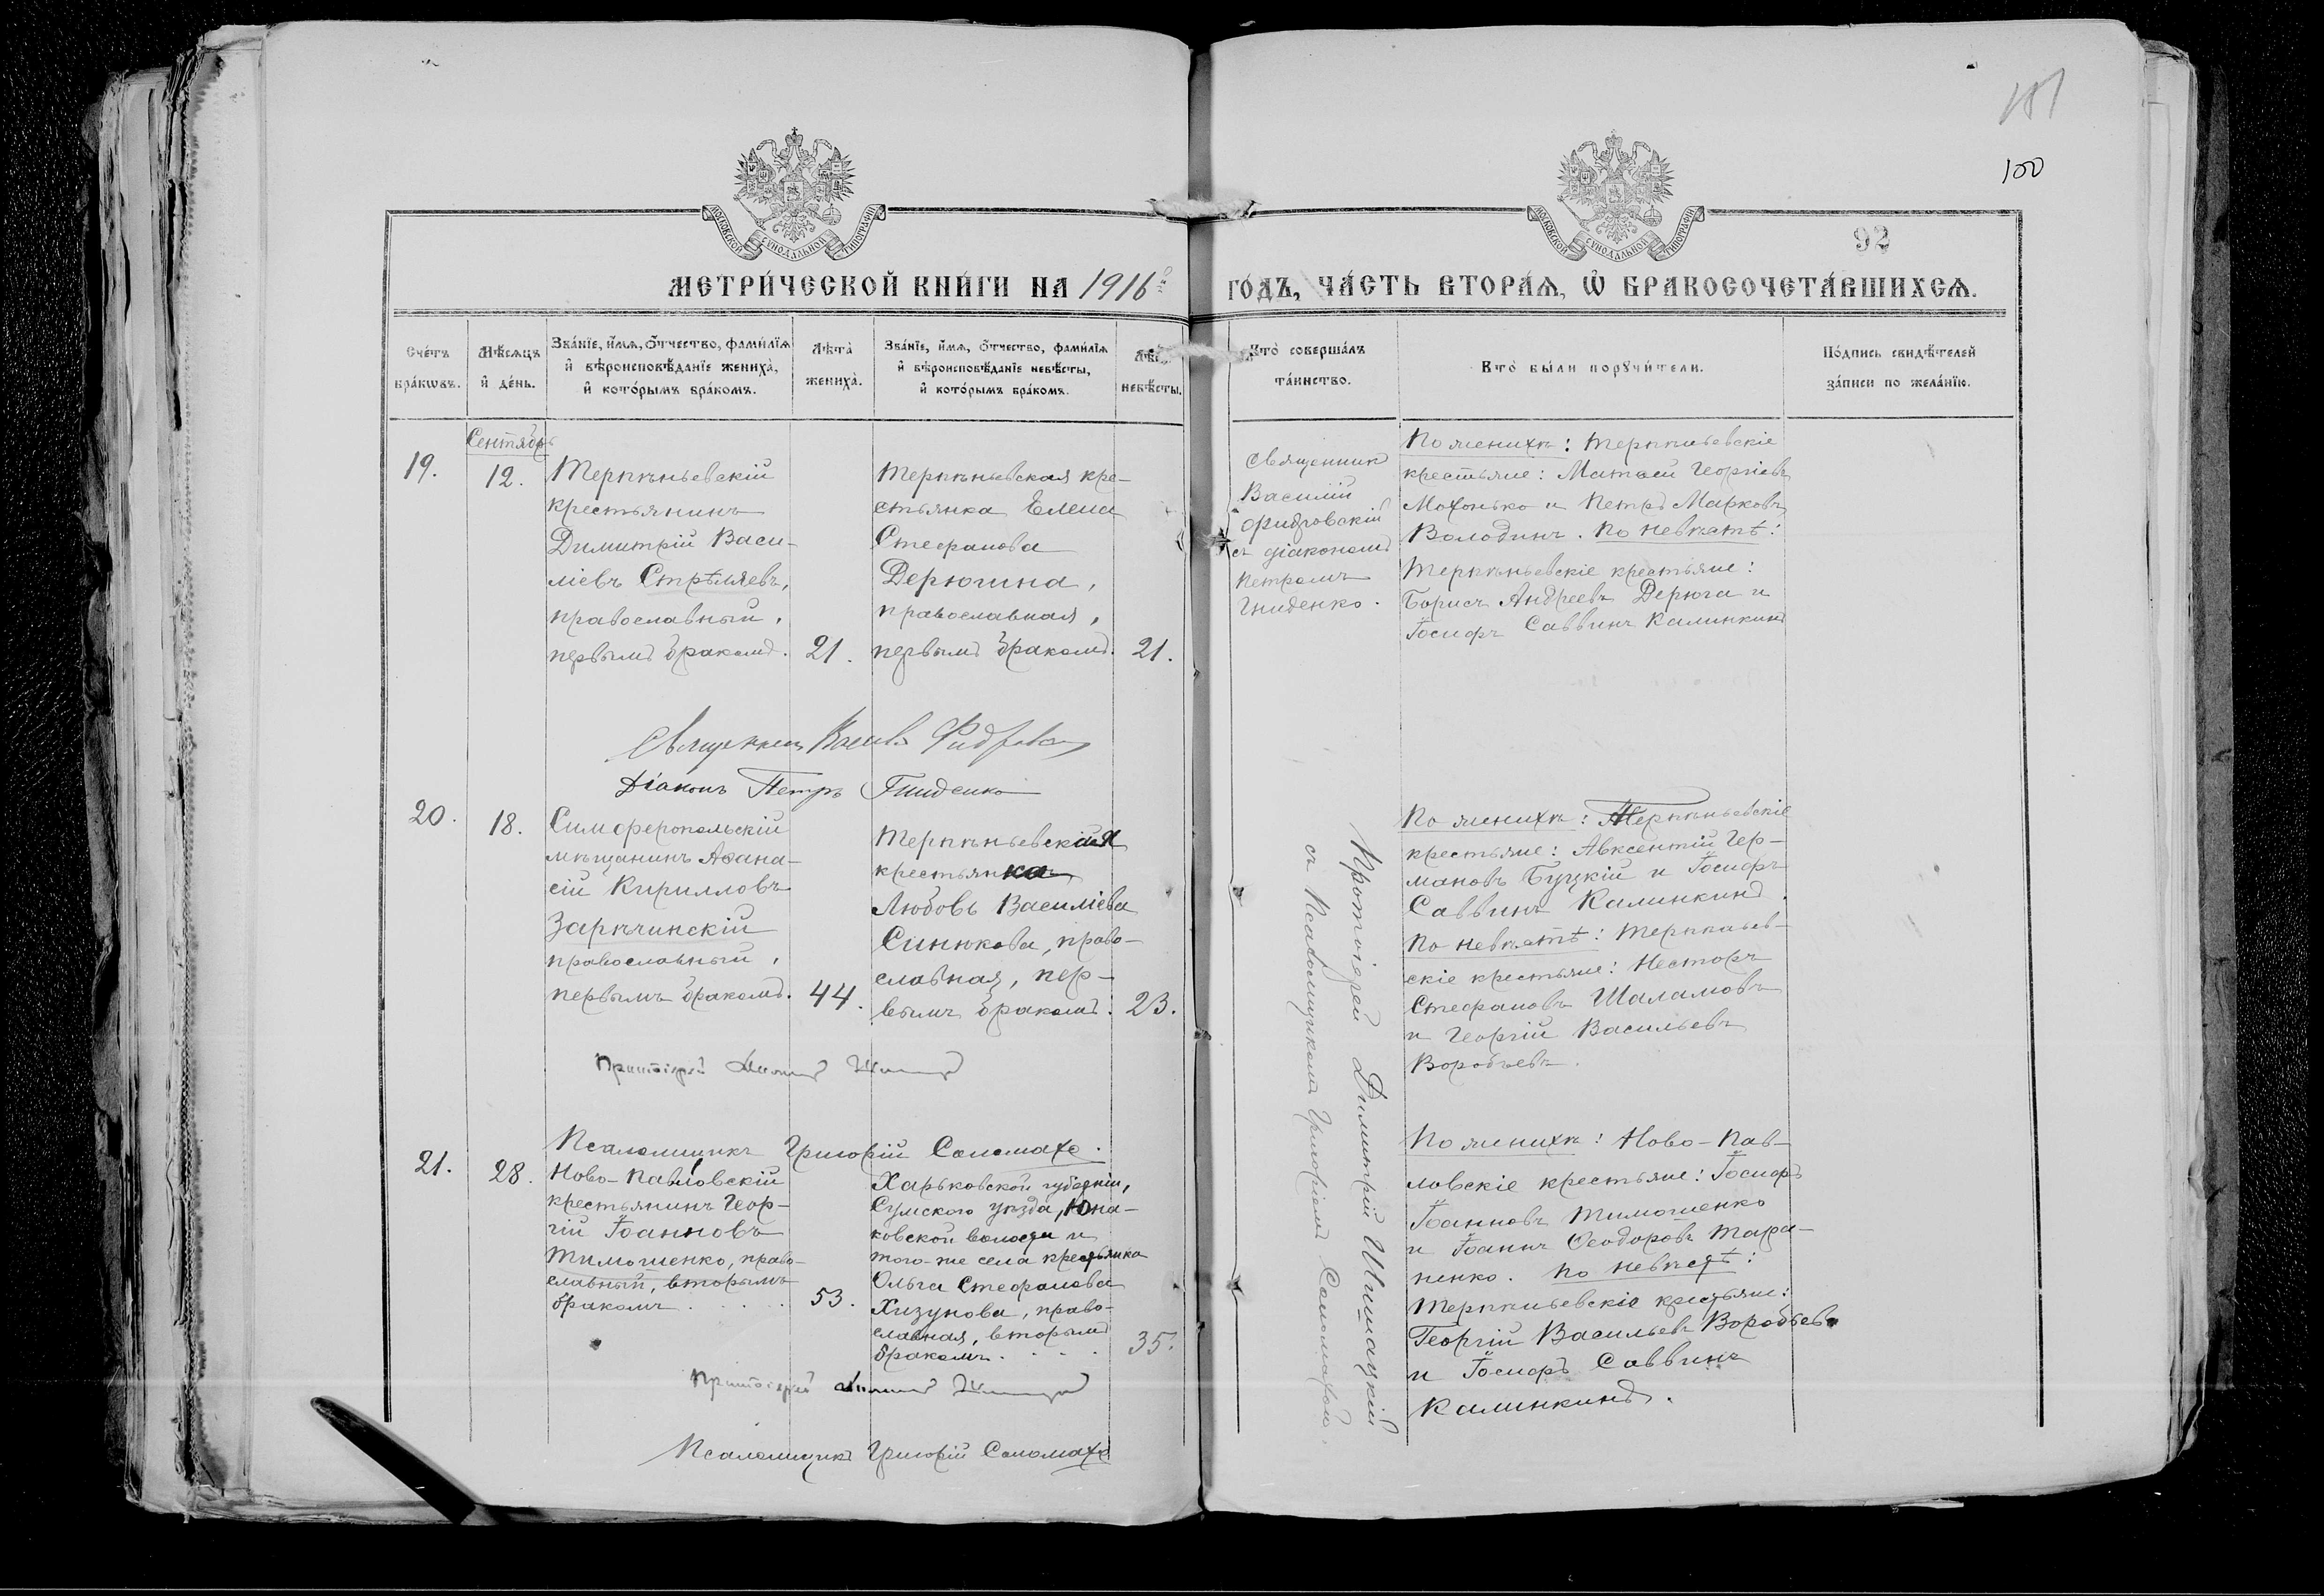 100
МОСКОВСКОЙ СУНОДАЛЬНОЙ ТИПОГРАФІИ
МОСКОВСКОЙ СУНОДАЛЬНОЙ ТИПОГРАФІИ
92
МЕТРИ́ЧЕСКОЙ КНИ́ГИ НА 1916
ГО́ДЪ, ЧА́СТЬ ВТОРА́Ѧ, Ѡ҆ БРАКОСОЧЕТА́ВШИХСѦ.
Сче́тъ
бра́кѡвъ.
Мѣ́сѧцъ
и҆ де́нь.
Зва́нїе, и҆́мѧ, ѻ҆́тчество, фами́лїѧ
и҆ вѣроисповѣ́данїе жениха̀,
и҆ кото́рымъ бра́комъ.
Лѣта̀
жениха̀.
Зва́нїе, и҆́мѧ, ѻ҆́тчество, фами́лїѧ
и҆ вѣроисповѣ́данїе невѣ́сты,
и҆ кото́рымъ бра́комъ.
невѣ́сты.
Кто̀ соверша́лъ
та́инство.
Кто̀ бы́ли порꙋчи́тели.
По́дпись свидѣ́телей
за́писи по жела́нїю.
Сентябрь
19.
12.
Терпѣньевскій
крестьянинъ
Димитрій Васи-
ліевъ Стрѣляевъ,
православный,
первымъ бракомъ.
21.
Терпѣньевская кре-
стьянка Елена
Стефанова
Дерюгина,
православная,
первымъ бракомъ.
21.
Священник
Василій
съ діакономъ
Петромъ
Гниденко.
По женихѣ: Терпѣньевскіе
крестьяне: Матѳей Георгіевъ
Мохонько и Петръ Марковъ
Володинъ. По невѣстѣ:
Терпѣньевскіе крестьяне:
Борисъ Андреевъ Дерюга и
Іосифъ Саввинъ Калинкинъ
Священникъ
Діаконъ Петръ Гниденко
20.
18.
Симферопольскій
мѣщанинъ Аѳана-
сій Кирилловъ
Зарѣчинскій
православный,
первымъ бракомъ.
44.
Терпѣньевская
крестьянка
Любовь Василіева
Синюкова, право-
славная, пер-
вымъ бракомъ.
23.
Протоіерей Димитрій
съ Псаломщикомъ Григоріемъ Соломахой.
По женихѣ: Терпѣньевскіе
крестьяне: Авксентій Гер-
мановъ Буцкій и Іосифъ
Саввинъ Калинкинъ.
По невѣстѣ: Терпѣньев-
скіе крестьяне: Несторъ
Стефановъ Шаламовъ
и Георгій Васильевъ
Воробьевъ.
Протоіерей
Псаломщикъ Григорій Соломаха.
21.
28.
Ново-Павловскій
крестьянинъ Геор-
гій Іоанновъ
Тимошенко, право-
славный, вторымъ
бракомъ
53.
Харьковской губерніи,
Сумского уѣзда, Юна-
ковской волости и
того-же села крестьянка
Ольга Стефанова
Хизунова, право-
славная, вторымъ
бракомъ
35.
По женихѣ: Ново-Пав-
ловскіе крестьяне: Іосифъ
Іоанновъ Тимошенко
и Іоаннъ Ѳеодоровъ Тара-
ненко. По невѣстѣ:
Терпѣньевскіе крестьяне:
Георгій Васильевъ Воробьевъ
и Іосифъ Саввинъ
Калинкинъ.
Протоіерей
Псаломщикъ Григорій Соломаха